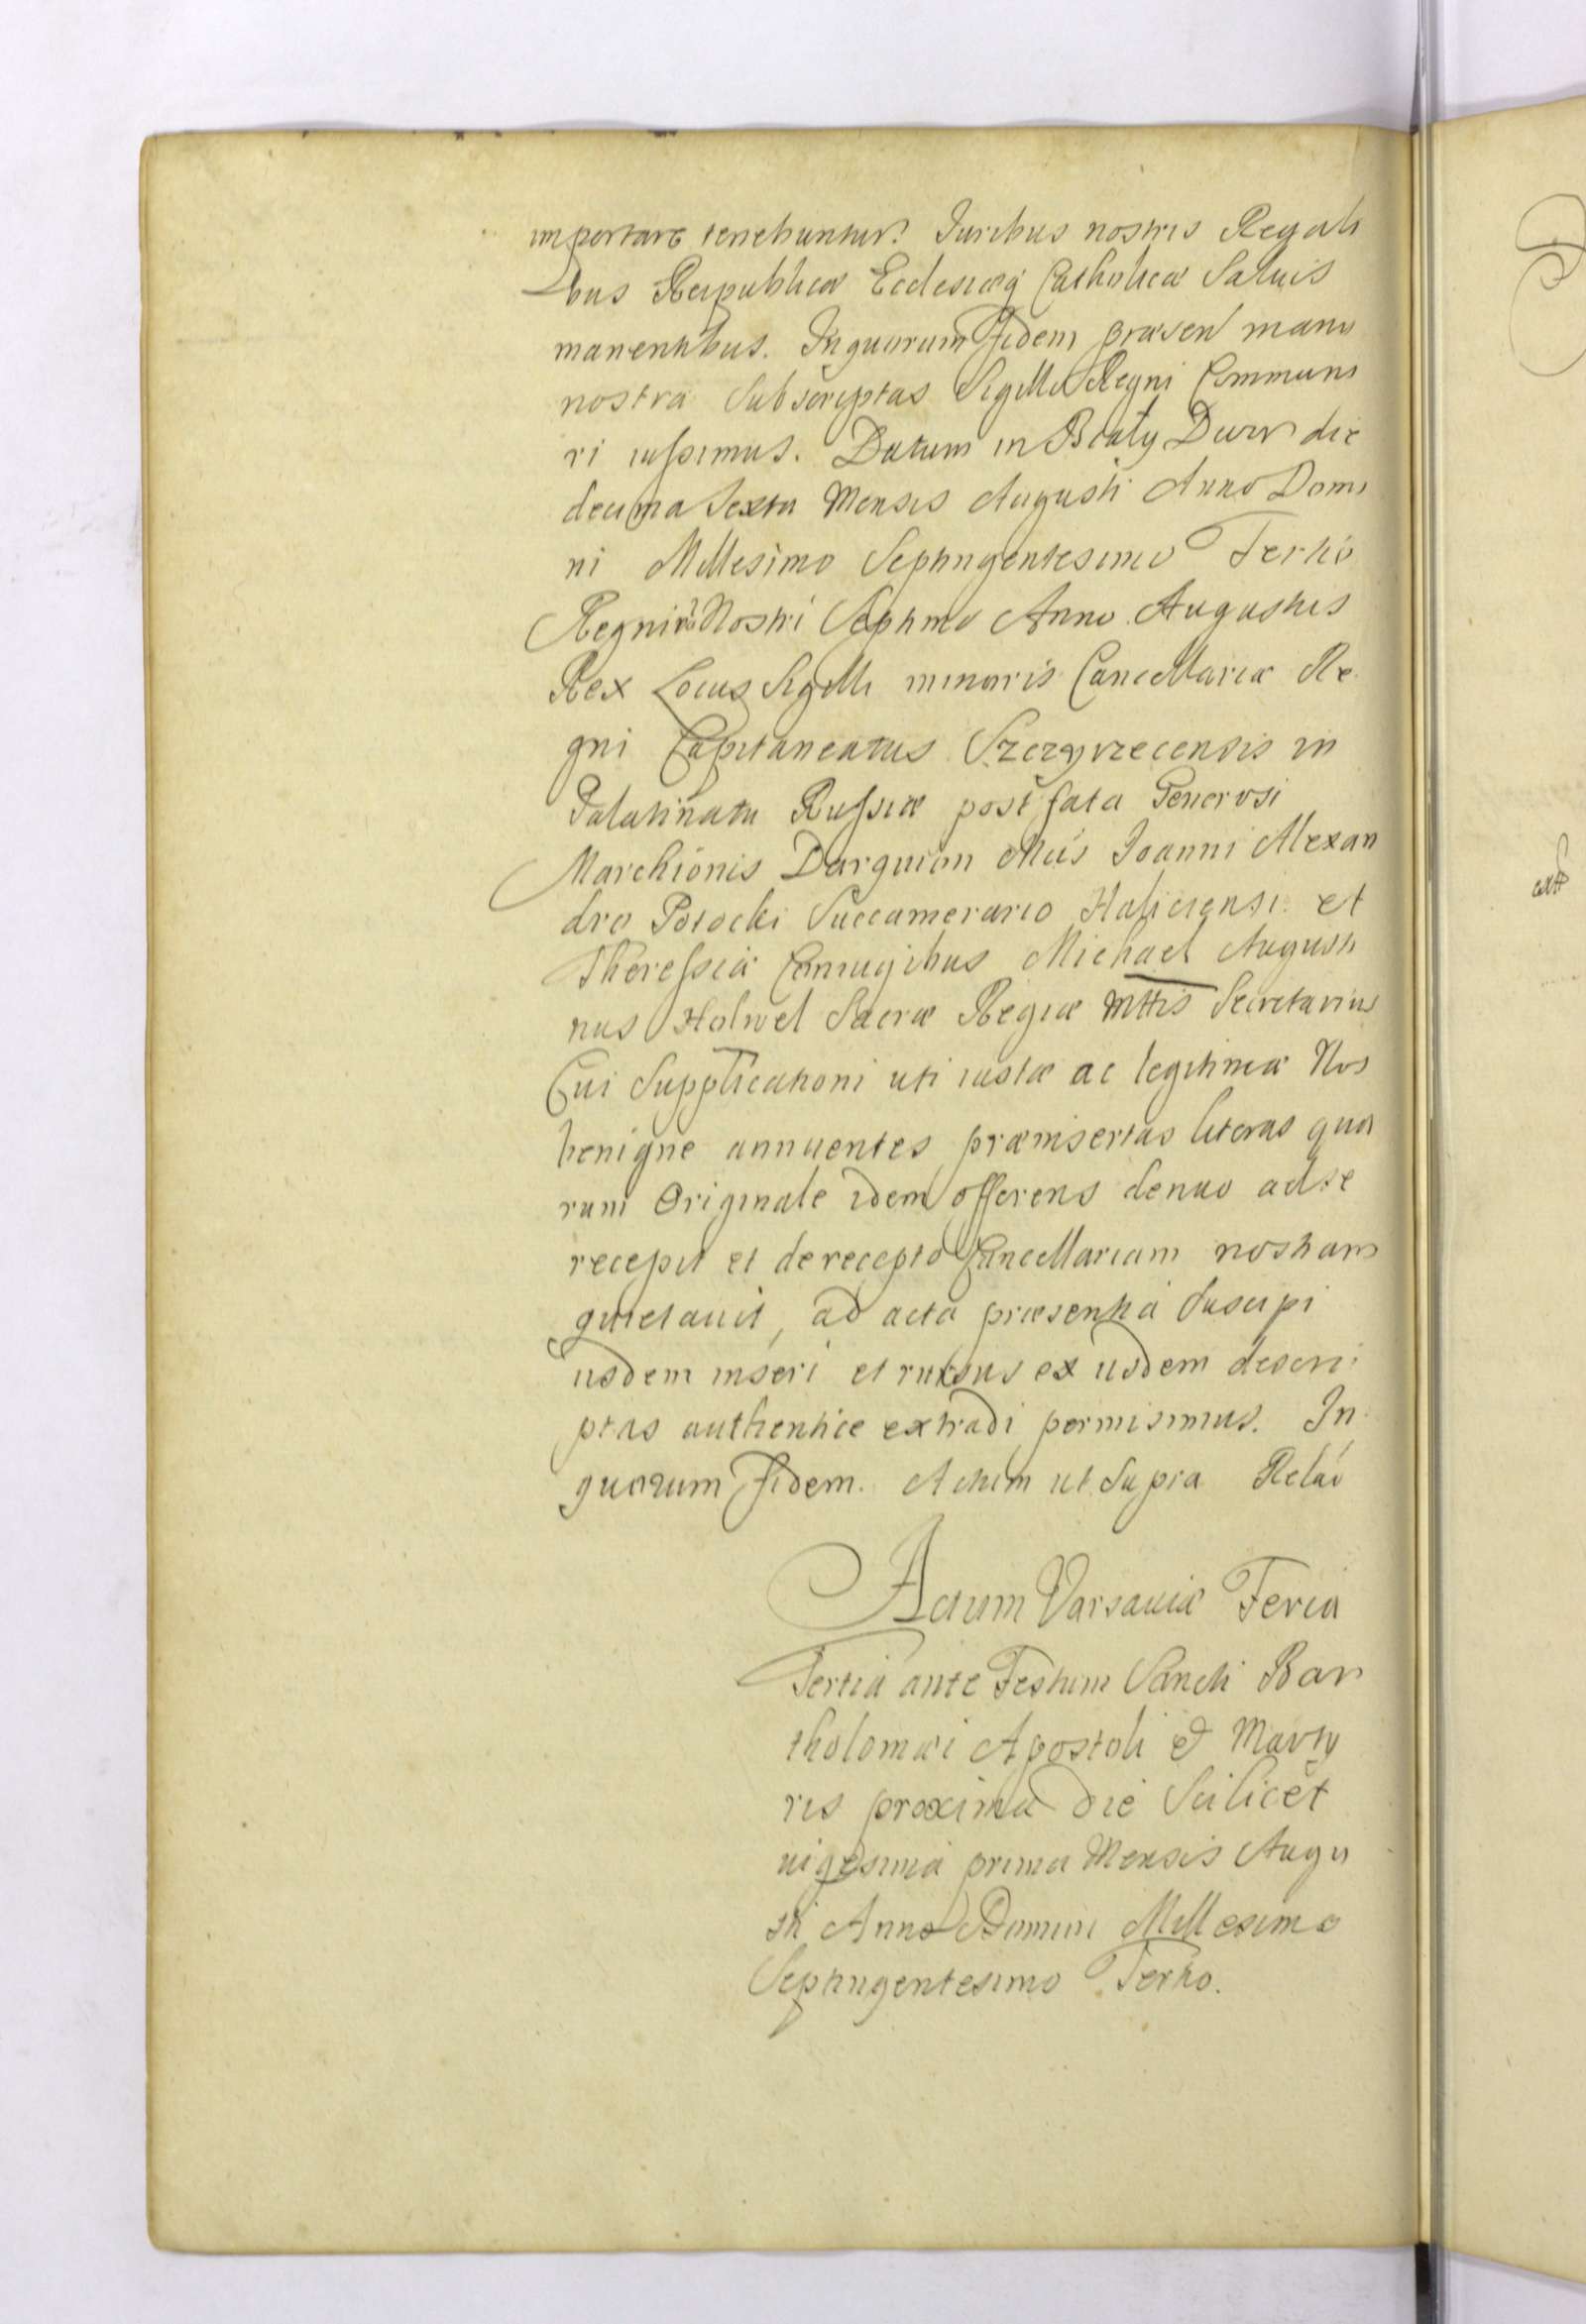 importare tenebuntur. Juribus nostris Regali
bus Reipublicæ Ecclesiæq Catholicæ Saluis
manentibus. Inquorum fidem præsen manu
nostra Subscriptas Sigillo Regni Communi
ri iussimus. Datum in Biały Dwor die
decima Sexta Mensis Augusti Anno Domi
ni Millesimo Septingentesimo Tertio
Regni vo Nostri Septimo Anno Augustus
Rex Locus Sigilli minoris Cancellariæ Re
gni Capitaneatus Szczyrzecensis in
Palatinatu Russiæ post fata Generosi
Marchionis Darquian Mcis Joanni Alexan
dro Potocki Succamerario Haliciensi et
Theressiæ Coniugibus Michael Augusti
nus Holwel Sacræ Regiæ Mttis Secretarius
Cui Supplicationi uti iustæ ac legitimæ Nos
benigne annuentes præinsertas literas quo
rum Originale idem offerens denuo ad se
recepit et de recepto Cancellariam nostram
quietauit, ad acta præsentia Suscipi
iisdem inseri et rursus ex iisdem descri
ptas authentice extradi permisimus. In
quorum fidem. Actum ut Supra Relao
Actum Varsauiæ Feria
Tertia ante Festum Sancti Bar
tholomæi Apostoli & Marty
ris proxima die Scilicet
uigesima prima Mensis Augu
sti Anno Domini Millesimo
Septingentesimo Tertio.